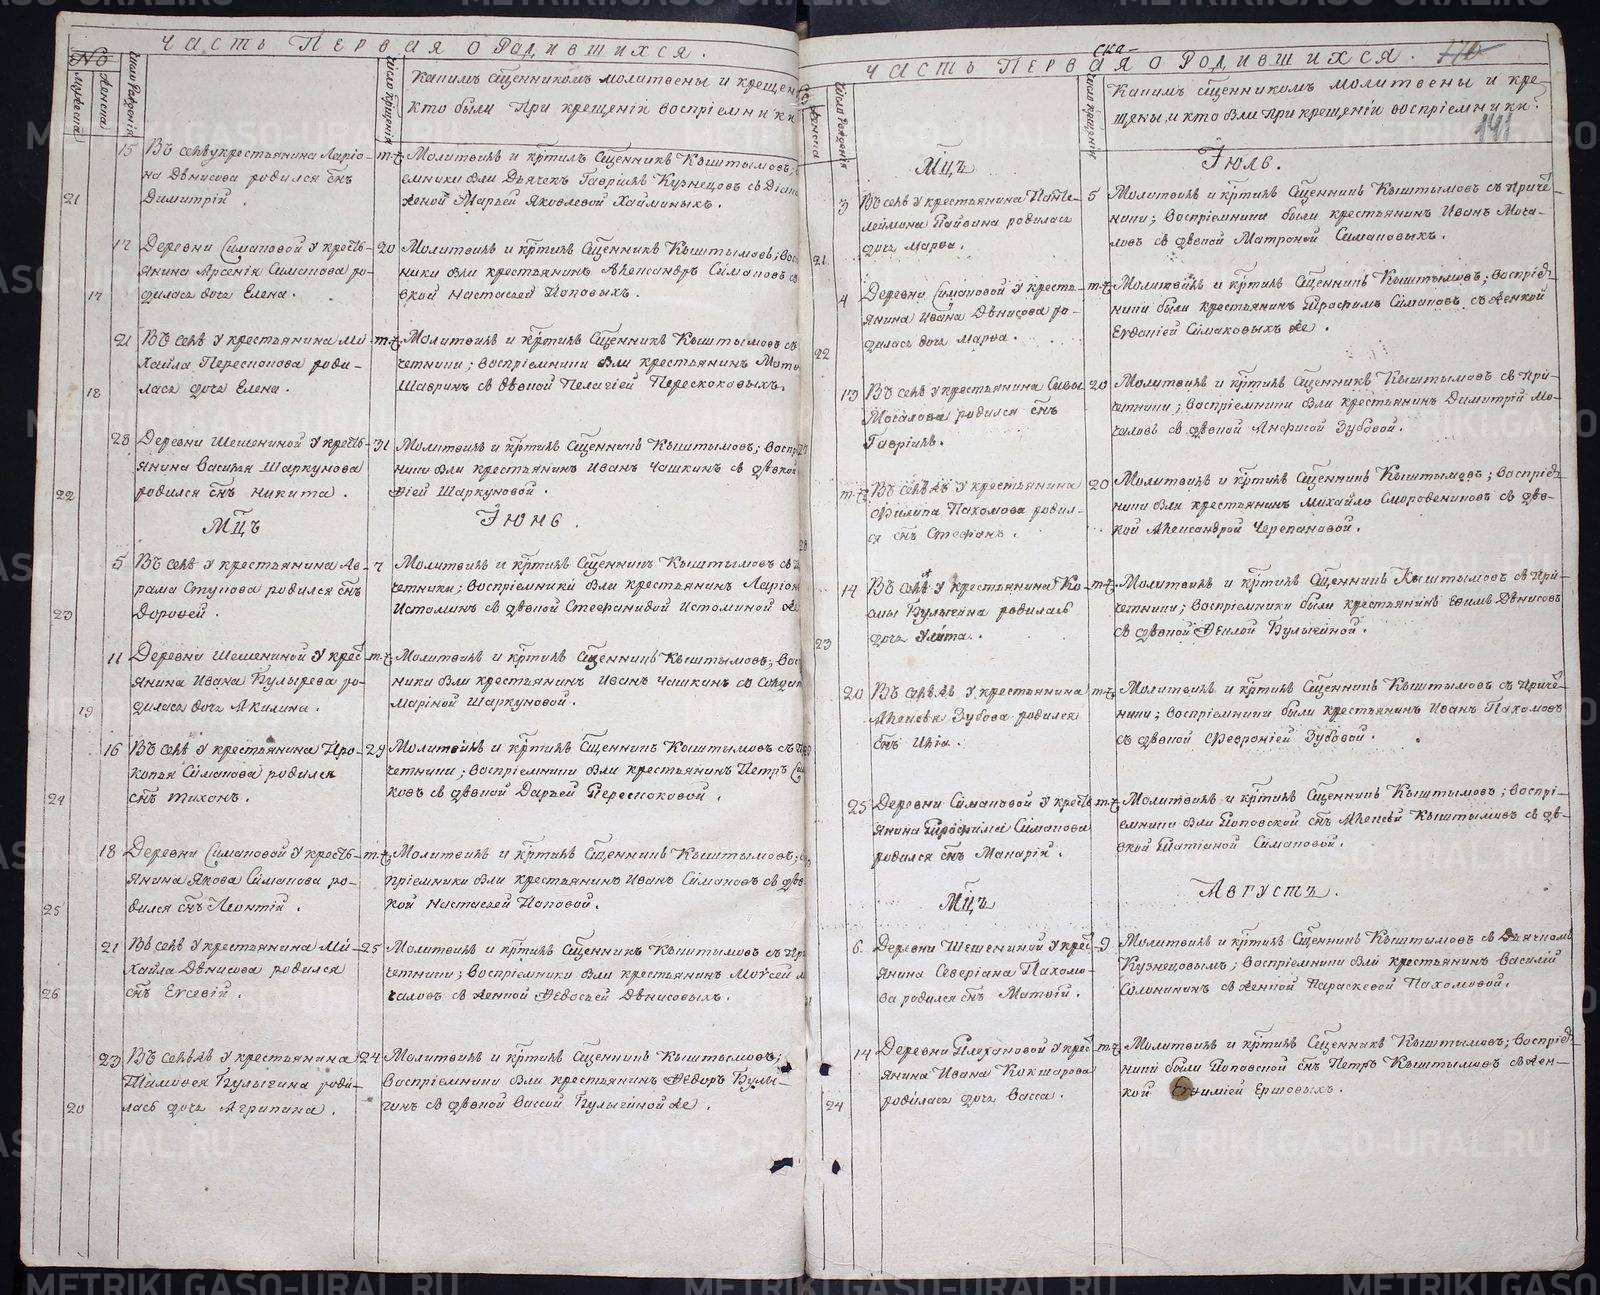 Часть Первая о Родившихся.
No
мужеска
женска
число рождения
число крещения
Какимъ Сщенникомъ молитвены и крещен
кто были при крещенiи воспрiемники
21
15
Въ селѣ у крестьянина Ларiо-
на Денисова родился снъ
Димитрiй.
т-ж
Молитвилъ и крстилъ Сщенникъ Кыштымовъ;
емники были Дьячекъ Гаврiилъ Кузнецовъ съ
женой Марьей Яковлевой Хайминыхъ.
17
17
Деревни Симановой у кресть-
янина Арсенiя Симанова ро-
дилась дочь Елена.
20
Молитвилъ и крстилъ Сщенникъ Кыштымовъ; вос
ники были крестьянинъ Александръ Симановъ съ
вкой Настасьей Поповыхъ.
18
21
Въ селѣ у крестьянина Ми-
хайла Перескокова роди-
лась дочь Елена.
т-ж
Молитвилъ и крстилъ Сщенникъ Кыштымовъ съ
четники; воспрiемники были крестьянинъ
Шавринъ съ дѣвкой Пелагiей Перескоковыхъ.
22
28
Деревни Шешениной у кресть-
янина Василья Шаркунова
родился снъ Никита.
31
Молитвилъ и крстилъ Сщенникъ Кыштымовъ; воспр
ники были крестьянинъ Иванъ Чашкинъ съ дѣвкой
фiей Шаркуновой.
Мцъ
Iюнь.
23
5
Въ селѣ у крестьянина Ав-
рама Ступова родился снъ
Дорофей.
7
Молитвилъ и крстилъ Сщенникъ Кыштымовъ съ
четники; воспрiемники были крестьянинъ Ларiон
Истоминъ съ дѣвкой Стефанидой Истоминой
19
11
Деревни Шешениной у крес
янина Ивана Булырева ро-
дилась дочь Акилина.
т-ж
Молитвилъ и крстилъ Сщенникъ Кыштымовъ; вос
ники были крестьянинъ Иванъ Чашкинъ съ
Мариной Шаркуновой.
24
16
Въ селѣ у крестьянина Про-
копья Симанова родился
снъ Тихонъ.
29
Молитвилъ и крстилъ Сщенникъ Кыштымовъ съ
четники; воспрiемники были крестьянинъ Петръ
ковъ съ дѣвкой Дарьей Перескоковой.
25
18
Деревни Симановой у кресть-
янина Якова Симанова ро-
дился снъ Леонтiй.
т-ж
Молитвилъ и крстилъ Сщенникъ Кыштымовъ;
прiемники были крестьянинъ Иванъ Симановъ съ дѣв
кой Настасьей Поповой.
26
21
Въ селѣ у крестьянина Ми-
хайла Денисова родился
снъ Евсевiй.
25
Молитвилъ и крстилъ Сщенникъ Кыштымовъ съ пр
четники; воспрiемники были крестьянинъ Моѵсей
чаловъ съ женкой Федосьей Денисовыхъ.
20
23
Въ селѣ у крестьянина
Тимофея Булыгина роди-
лась дочь Агрипина.
24
Молитвилъ и крстилъ Сщенникъ Кыштымовъ;
воспрiемники были крестьянинъ Федоръ Булы-
гинъ съ дѣвкой Вассой Булыгиной
Часть Первая о Родившихся.
ска-
141
женска
число рождения
число крещения
Какимъ Сщенникомъ молитвены и кре-
щены, и кто были при крещенiи воспрiемники.
Мцъ
Iюль.
21
3
Въ селѣ у крестьянина Панте-
леймона Пайвина родилась
дочь Марфа.
5
Молитвилъ и крстилъ Сщенникъ Кыштымовъ съ приче-
ники; воспрiемники были крестьянинъ Иванъ Моча-
ловъ съ дѣвкой Матроной Симановыхъ.
22
4
Деревни Симановой у кресть-
янина Ивана Денисова ро-
дилась дочь Марфа.
т-ж
Молитвилъ и крстилъ Сщенникъ Кыштымовъ; воспрiе
ники были крестьянинъ Трофимъ Симановъ съ женкой
Евдокiей Симаковыхъ же.
27
13
Въ селѣ у крестьянина Сивы
Мочалова родился снъ
Гаврiилъ.
20
Молитвилъ и крстилъ Сщенникъ Кыштымовъ съ при-
четники; воспрiемники были крестьянинъ Димитрiй Мо-
чаловъ съ дѣвкой Анфисой Зубовой.
28
т-ж
Въ селѣ у крестьянина
Филипа Пахомова родил-
ся снъ Стефанъ.
20
Молитвилъ и крстилъ Сщенникъ Кыштымовъ; воспрiе
ники были крестьянинъ Михайло Смородениковъ съ дѣв-
кой Александрой Черепановой.
23
14
Въ селѣ у крестьянина Ко-
смы Булыгина родилась
дочь Улита.
т-ж
Молитвилъ и крстилъ Сщенникъ Кыштымовъ съ при-
четники; воспрiемники были крестьянинъ Ефимъ Денисовъ
съ дѣвкой Феклой Булыгиной.
20
Въ селѣ у крестьянина
Алексѣя Зубова родился
снъ Илiа.
т-ж
Молитвилъ и крстилъ Сщенникъ Кыштымовъ съ приче-
ники; воспрiемники были крестьянинъ Иванъ Пахомовъ
съ дѣвкой Февронiей Зубовой.
25
Деревни Симановой у кресть
янина Трофима Симанова
родился снъ Макарiй.
т-ж
Молитвилъ и крстилъ Сщенникъ Кыштымовъ; воспрi-
емники были Поповской снъ Алексѣй Кыштымовъ съ дѣ-
вкой Татiаной Симановой.
Мцъ
Августъ.
6
Деревни Шешениной у крес
янина Северiана Пахомо-
ва родился снъ Матфiй.
9
Молитвилъ и крстилъ Сщенникъ Кыштымовъ съ Дьячкомъ
Кузнецовымъ; воспрiемники были крестьянинъ Василiй
Солонининъ съ женкой Параскевой Пахомовой.
24
14
Деревни Плехановой у крес
янина Ивана Кокшарова
родилась дочь Васса.
т-ж
Молитвилъ и крстилъ Сщенникъ Кыштымовъ; воспрiе
ники были Поповской снъ Петръ Кыштымовъ съ жен-
кой Евфимiей Ершовыхъ.
METRIKI.GASO-URAL.RU